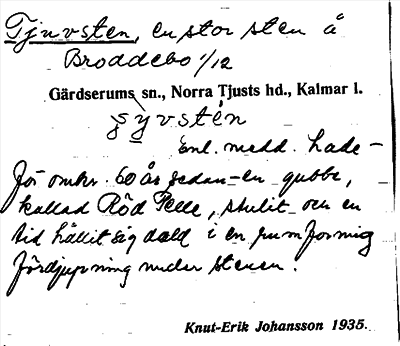 Tjuvsten, en stor sten å
Broddebo 1/12
Gärdserums sn., Norra Tjusts hd., Kalmar l.
Enl. medd. hade
för omkr. 60 år sedan en gubbe,
kallad Röd Pelle, stulit och en
tid hållit sig dold i en rumformig
fördjupning under stenen.
Knut-Erik Johansson 1935.